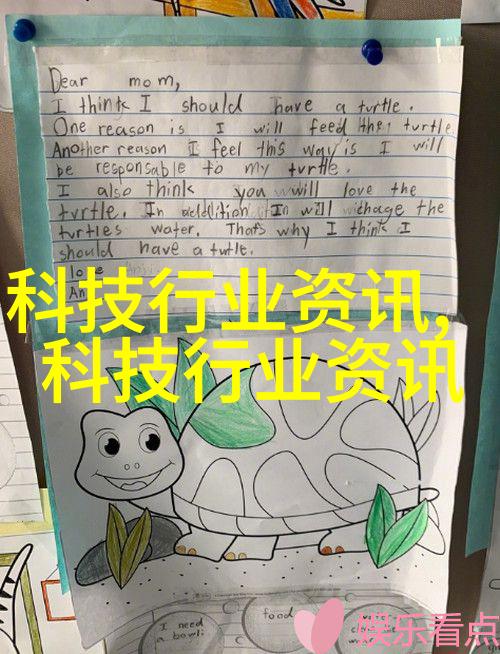 Dear mom,
I think I should have a turtle.
One reason is I will feed the turtle.
Another reason I feel this way is I will
be responsable to my turtle.
I also think you will love the
turtle. In addition I will chage the
turtles water. That's why I think I
should have a turtle.
love
An
科技行业资讯,
科技行业资讯
I need
a bowl
food
娱乐看点